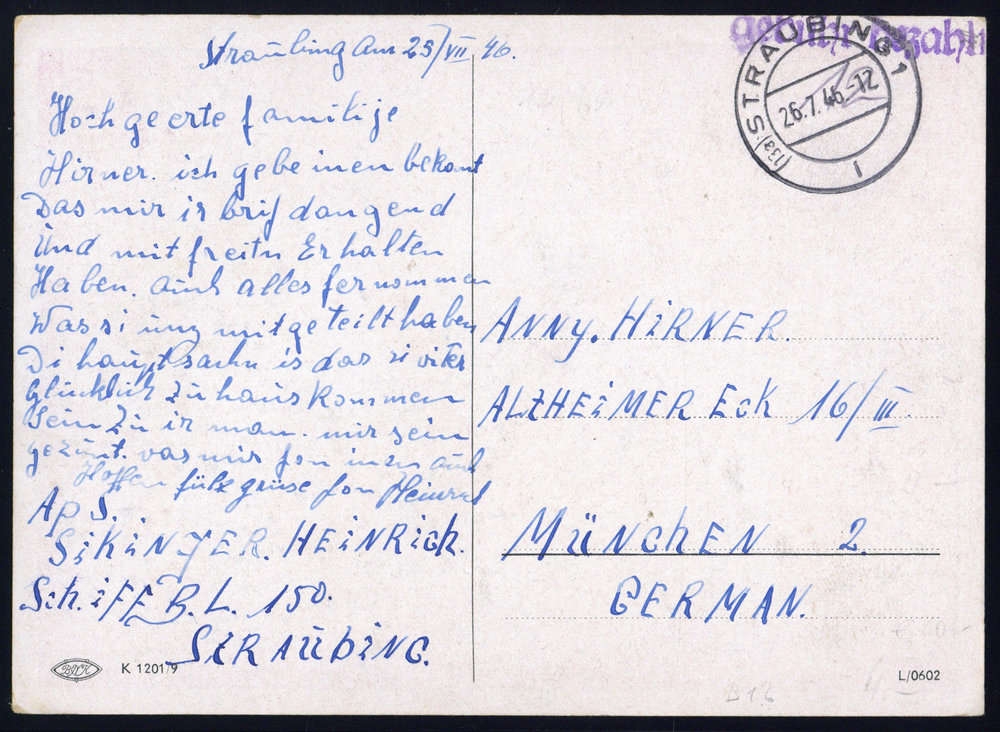 Straubing am 25/VII 46.
Hochgeerte familije
Hirner. ich gebe inen bekant
Das mir ir brif dangend
Und mit freitn Erhalten
Haben. auch alles fernommen
Was si unz mitgeteilt haben
Di hauptsachn is das si viter
Glücklich Zu haus Kommen
Sein Zu ir man. mir sein
gezunt. vas mir fon inen auch
Hoffen filz grüse fon Heinrich
Aps.
SiKiNJER. HEiNRich.
Sch.iFF B.L. 150.
STRAUBING.
Gebühr bezahlt
(13a) STRAUBING 1
26.7.46.-12
ANNy. HiRNER.
ALZHEiMER Eck 16/III.
MÜNchEN 2.
GERMAN.
K 1201/9
L/0602